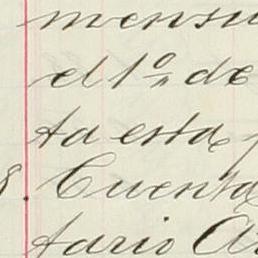 mensu
el 1º de
ta esta p
8. Cuenta
tario A